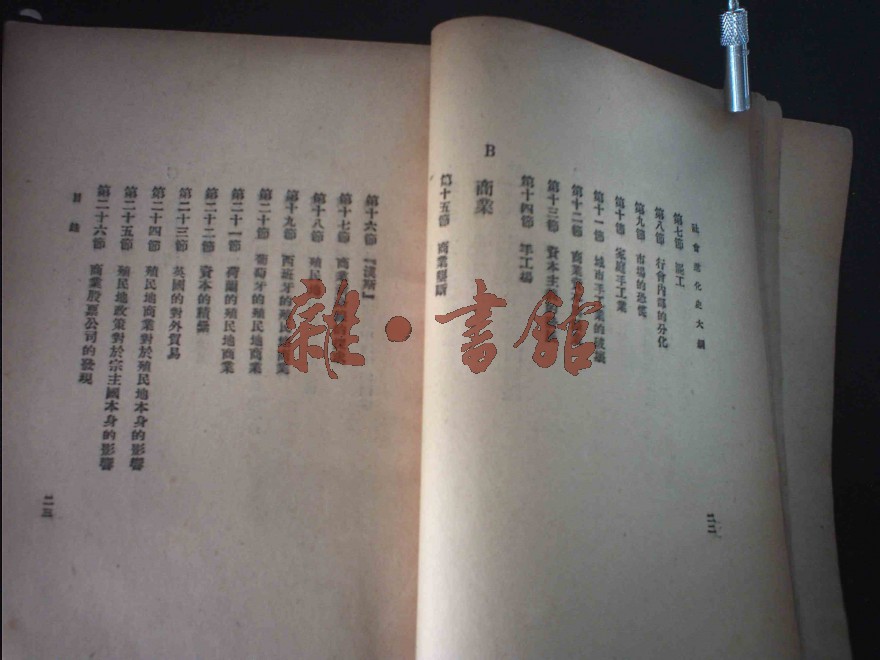 社會進化史大綱
第七節 罷工
第八節 行會內部的分化
第九節 市場的恐慌
第十節 家庭手工業
第十一節 城市手工業的後壞
第十二節 商業
第十三節 資本主
第十四節 手工場
B 商業
第十五節 商業壟斷
二二
第十六節 『漢斯』
第十七節 商業
第十八節 殖民
第十九節 西班牙的殖民地商業
第二十節 葡萄牙的殖民地商業
第二十一節 荷蘭的殖民地商業
第二十二節 資本的積蓄
第二十三節 英國的對外貿易
第二十四節 殖民地商業對於殖民地本身的影響
第二十五節 殖民地政策對於宗主國本身的影響
第二十六節 商業股票公司的發現
目錄
二三
雜·書館